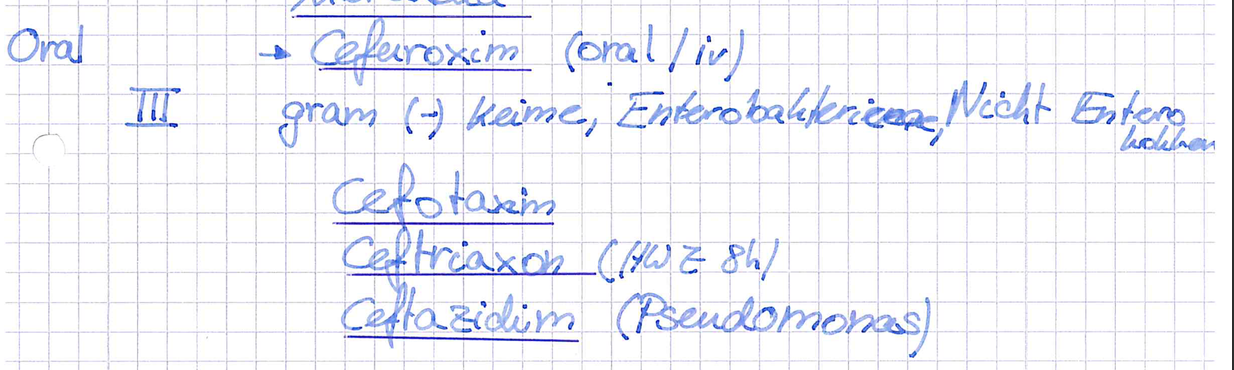 Oral → Cefuroxim (oral / iv)
III gram (-) Keime, Enterobaktericeae, Nicht Entero
kokken
Cefotaxim
Ceftriaxon (HWZ 8h)
Ceftazidim (Pseudomonas)